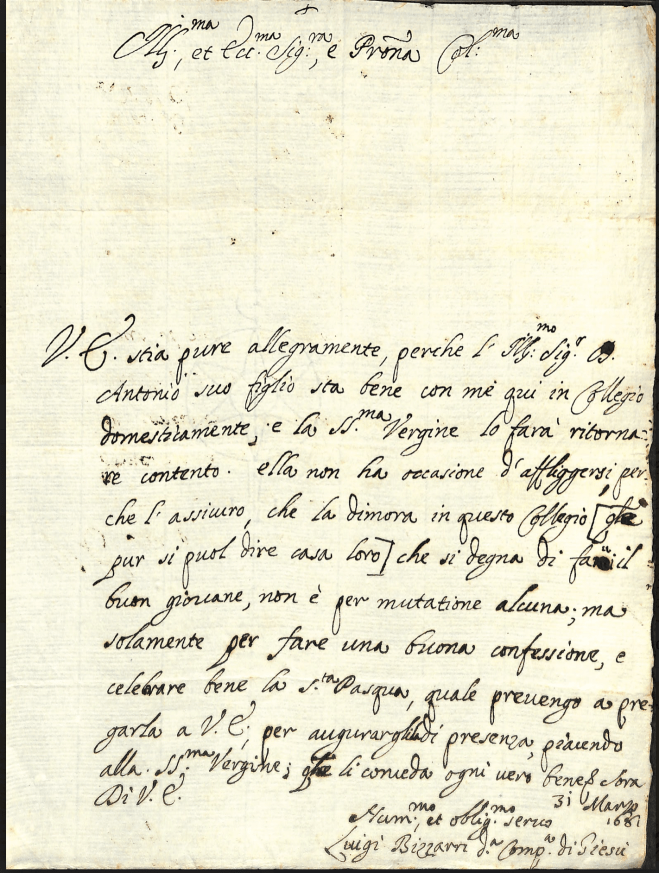 Ill:ma, et Ecc:ma Sig:ra, e Pro͠na Col:ma
V. E. stia pure allegramente, perche l' Ill:mo Sig:r D.
Antonio suo figlio sta bene con me qui in Collegio
domesticamente, e la SS.ma Vergine lo farà ritorna
re contento. ella non ha occasione d'affliggersi, per
che l'assicuro, che la dimora in questo Collegio [che
pur si puol dire casa loro] che si degna di farvi il
buon giovane, non è per mutatione alcuna, ma
solamente per fare una buona confessione, e
celebrare bene la S.ta Pasqua, quale prevengo a pre
garla a V. E., per augurargliela di presenza, piacendo
alla SS.ma Vergine; che li conceda ogni vero bene
Di V. E. 31 Marzo
Hum:mo, et oblig:mo servo
Luigi Bizzarri d.a Comp.a di Giesù